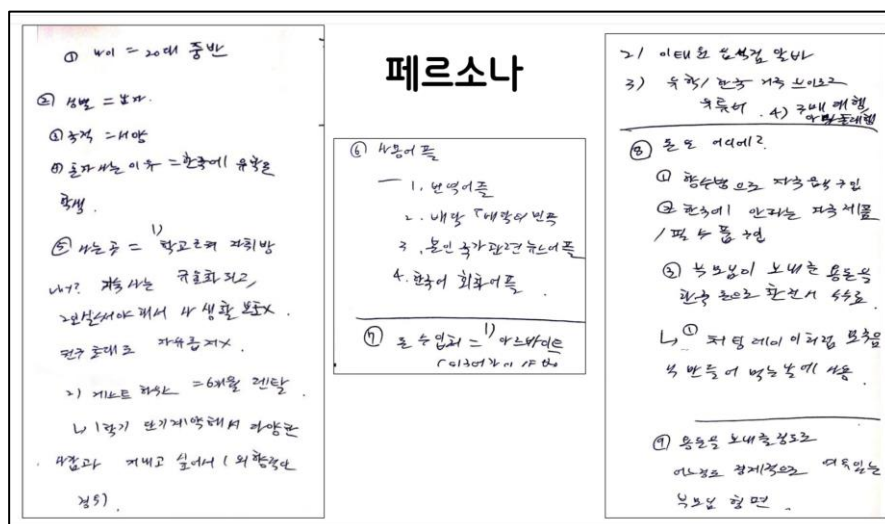 페르소나
① 나이 = 20대 중반
② 성별 = 남자.
③ 국적 = 서양
④ 혼자 사는 이유 = 한국에 유학온
학생.
⑤ 사는 곳 = 1) 학교근처 자취방
why? 기숙사는 규율화 되고,
2인실써야 돼서 사생활 보호x
친구 초대도 자유롭지x
2) 게스트 하우스 = 6개월 렌탈
↳ 1학기 단기계약해서 다양한
사람과 지내고 싶어서 (외향적인
경우)
⑥ 사용어플
1. 번역어플
2. 배달 「배달의 민족
3. 본인 국가 관련 뉴스어플
4. 한국어 회화어플
⑦ 돈 수입처 = 1) 아르바이트
2) 이태원 음식점 알바
3) 유학/한국 거주 브이로그
유튜버 4) 구매대행/
⑧ 돈 또 어디에?
① 향수병으로 자국음식 구입
② 한국에 안파는 자국 제품
/ 필수품 구입
③ 부모님이 보내준 용돈을
한국 돈으로 환전시 수수료
↳ ①
모국음
식 만들어 먹는 날에 사용
⑨ 용돈을 보내줄정도로
어느정도 경제적으로 여유있는
부모님 형편